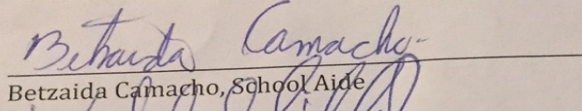 Betzaida Camacho
Betzaida Camacho, School Aide